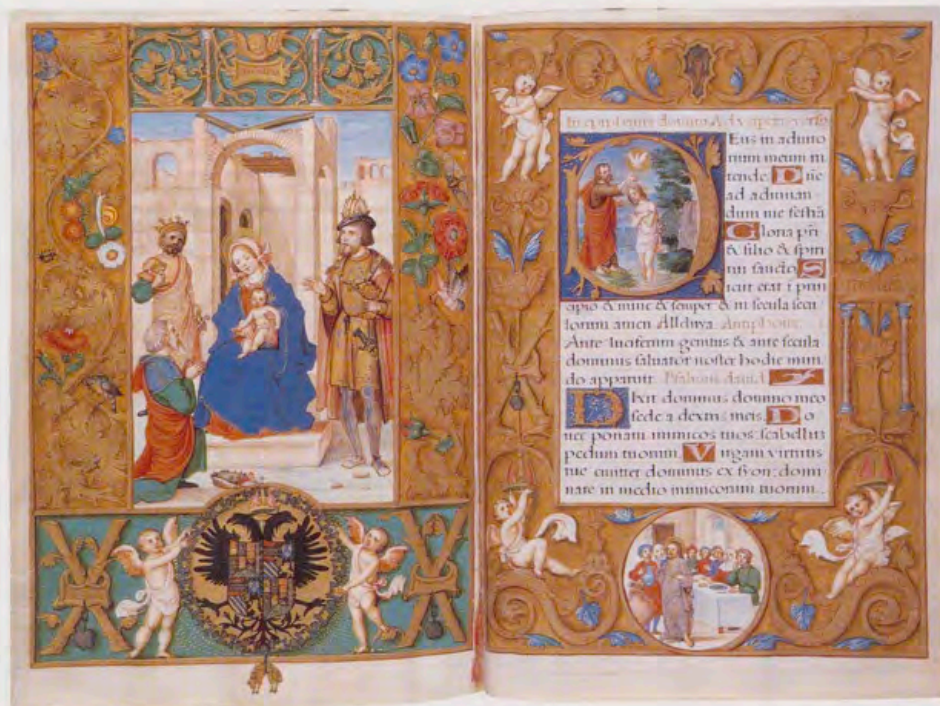 Eus in adiuto
rium meum in
tende. Dñe
ad adiuuan
dum me festiã
Gloria pri
& filio & spiri
tui sancto. S
icut erat i prin
cipio & nunc & semper & in secula secu
lorum amen. Alleluya. Antiphona.
Ante luciferum genitus & ante secula
dominus saluator noster hodie mun
do apparuit. Psalmus dauid.
Dixit dominus domino meo
sede a dextris meis. Do
nec ponam inimicos tuos scabellum
pedum tuorum. Virgam virtutis
tue emittet dominus ex syon: domi
nare in medio inimicorum tuorum.